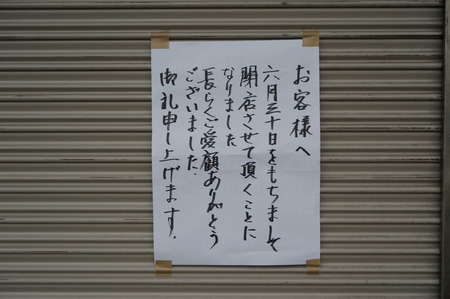 お客様へ
六月三十日をもちまして
閉店させて頂くことに
なりました
長らくご愛顧ありがとう
ございました.
御礼申し上げます.